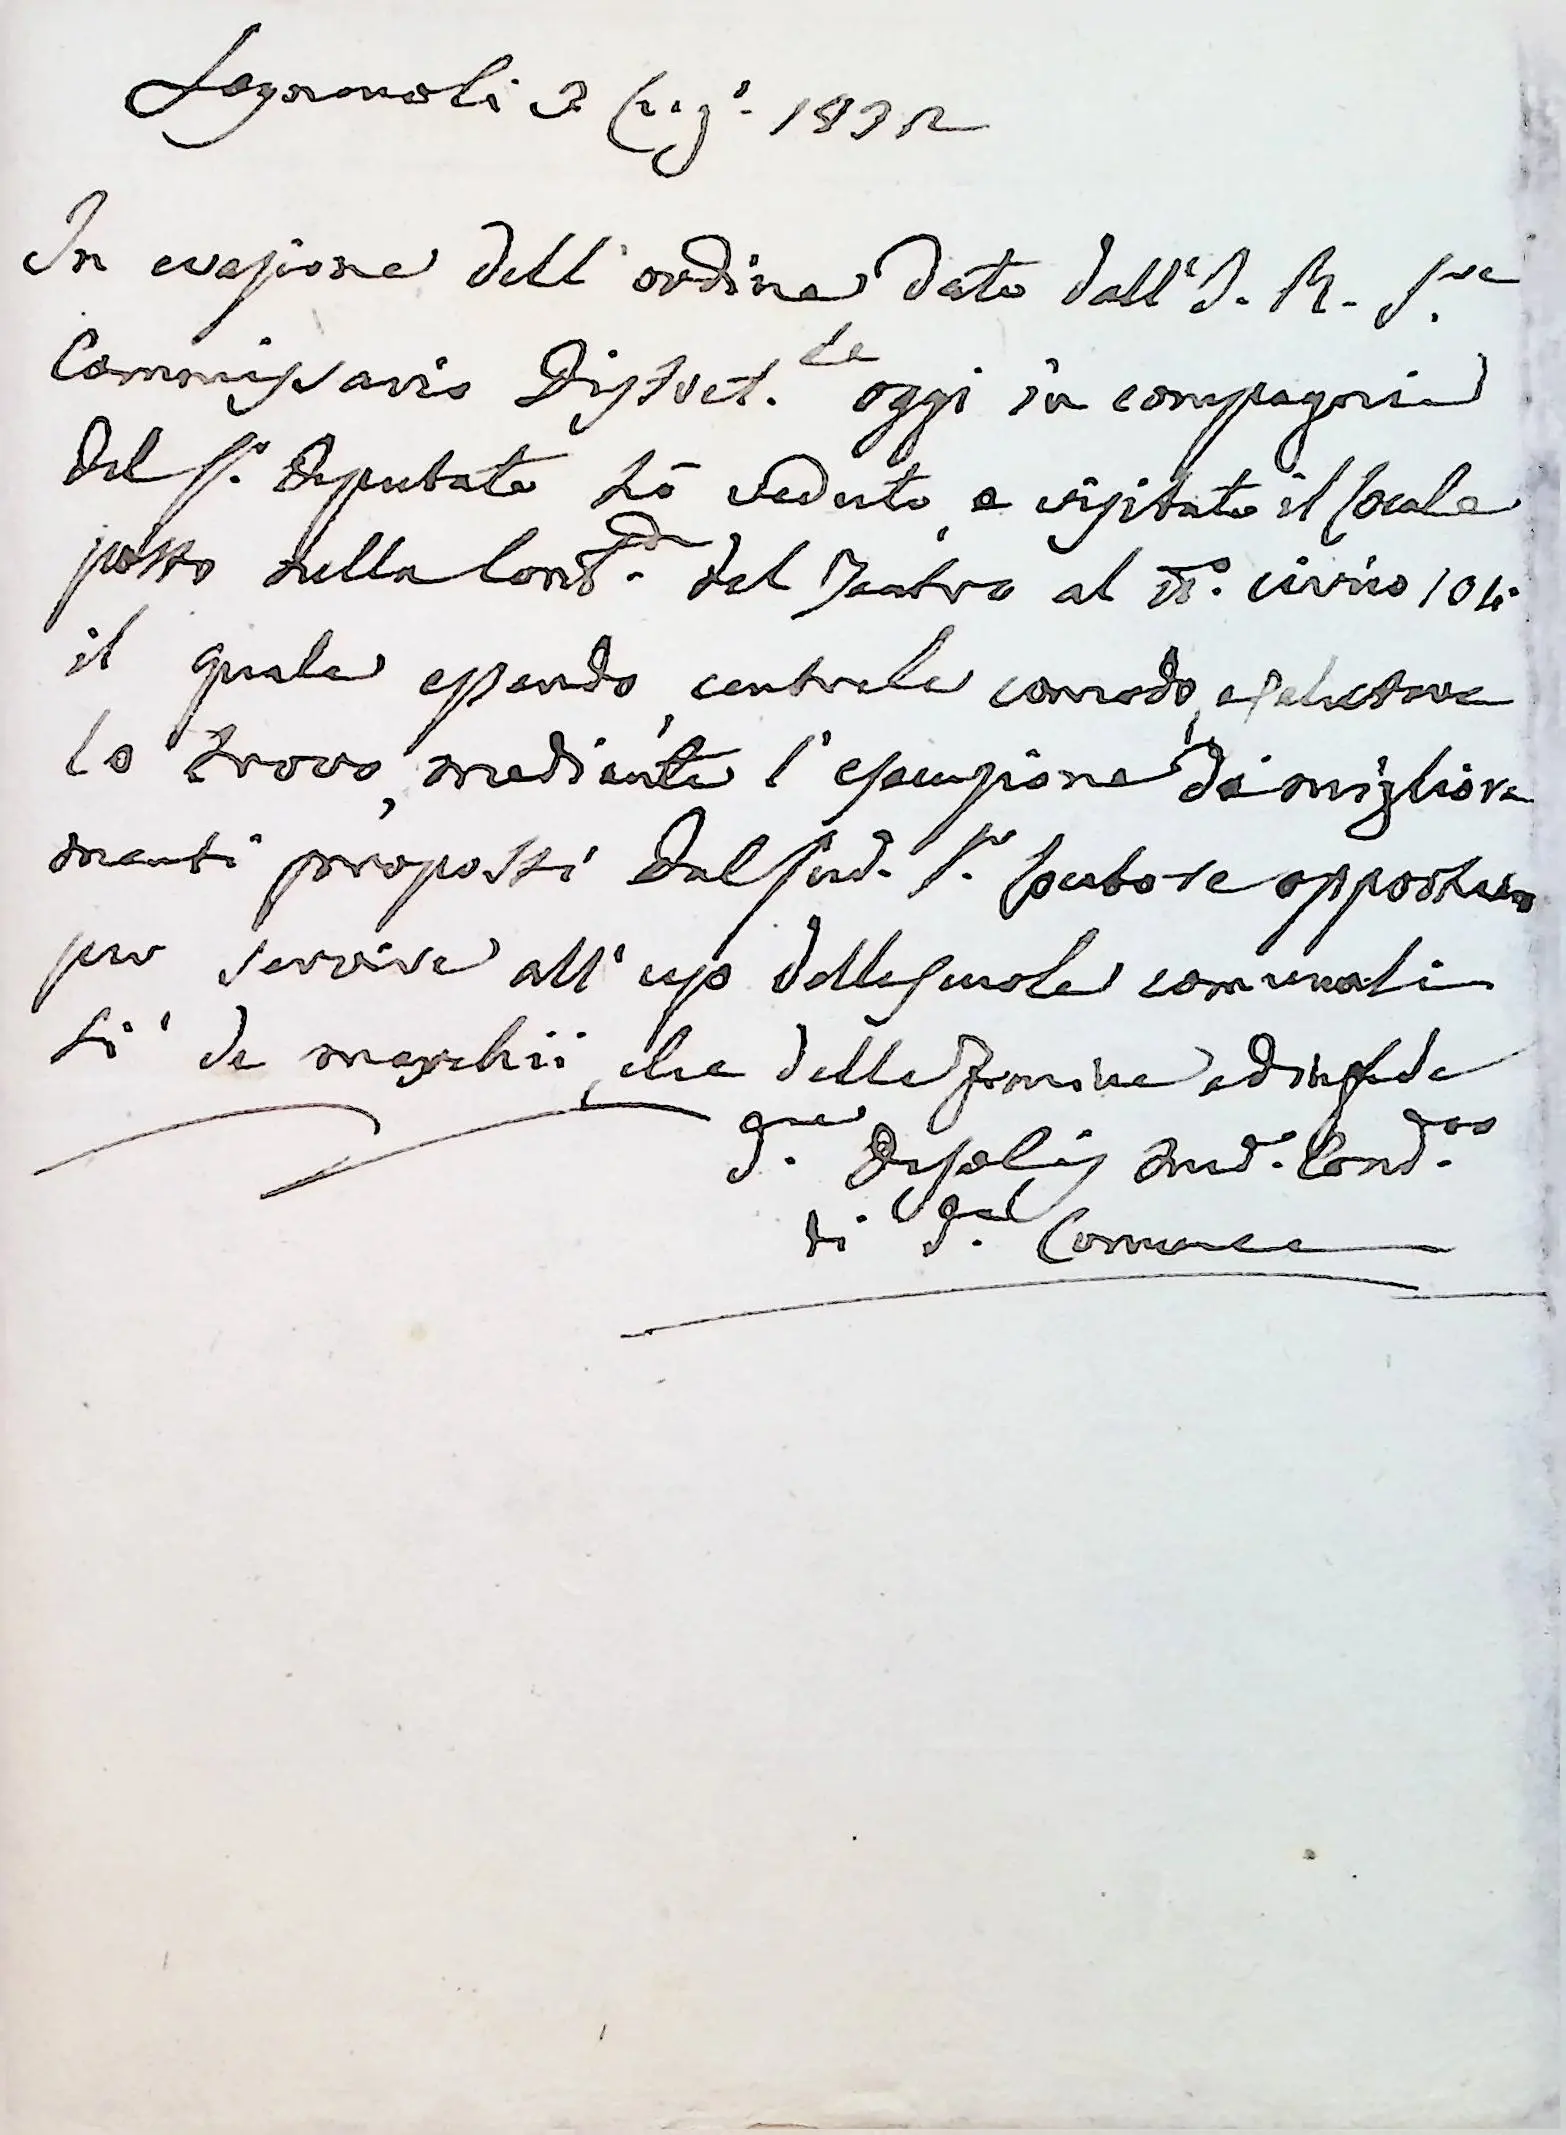 2 Lug.º 1832
In evasione dell'ordine dato dall'I. R. S.re
Commissario Distret.le oggi in compagnia
del S.r Deputato hò veduto, e visitato il locale
posto nella Cont.da del Teatro al N.º civico 104
il quale essendo, centrale comodo, e
lo trovo, mediante l'esecuzione dei migliora
menti proposti dal sud. S.r Locatore opportuno
per servire all'uso delle scuole comunali
sì de maschii, che delle femine ed in fede
Med.º Cond.to
di Comune